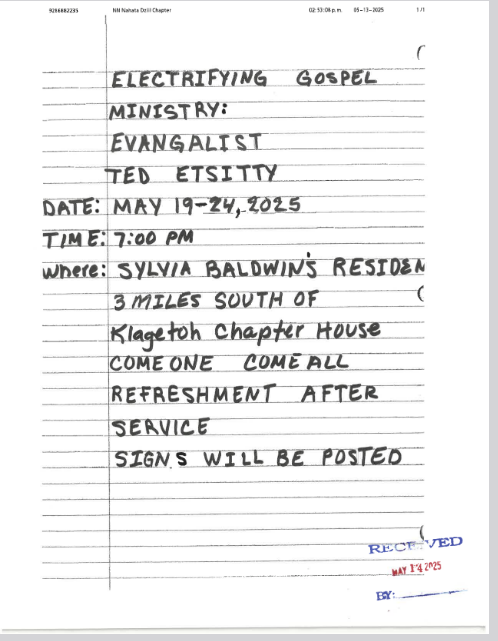 9286882235 NN Nahata Dziil Chapter 02:53:08 p.m. 05-13-2025 1/1
ELECTRIFYING GOSPEL
MINISTRY:
EVANGALIST
TED ETSITTY
DATE: MAY 19-24, 2025
TIME: 7:00 PM
Where: SYLVIA BALDWIN'S RESIDEN
3 MILES SOUTH OF
Klagetoh Chapter House
COME ONE COME ALL
REFRESHMENT AFTER
SERVICE
SIGNS WILL BE POSTED
RECEIVED
MAY 14 2025
BY: